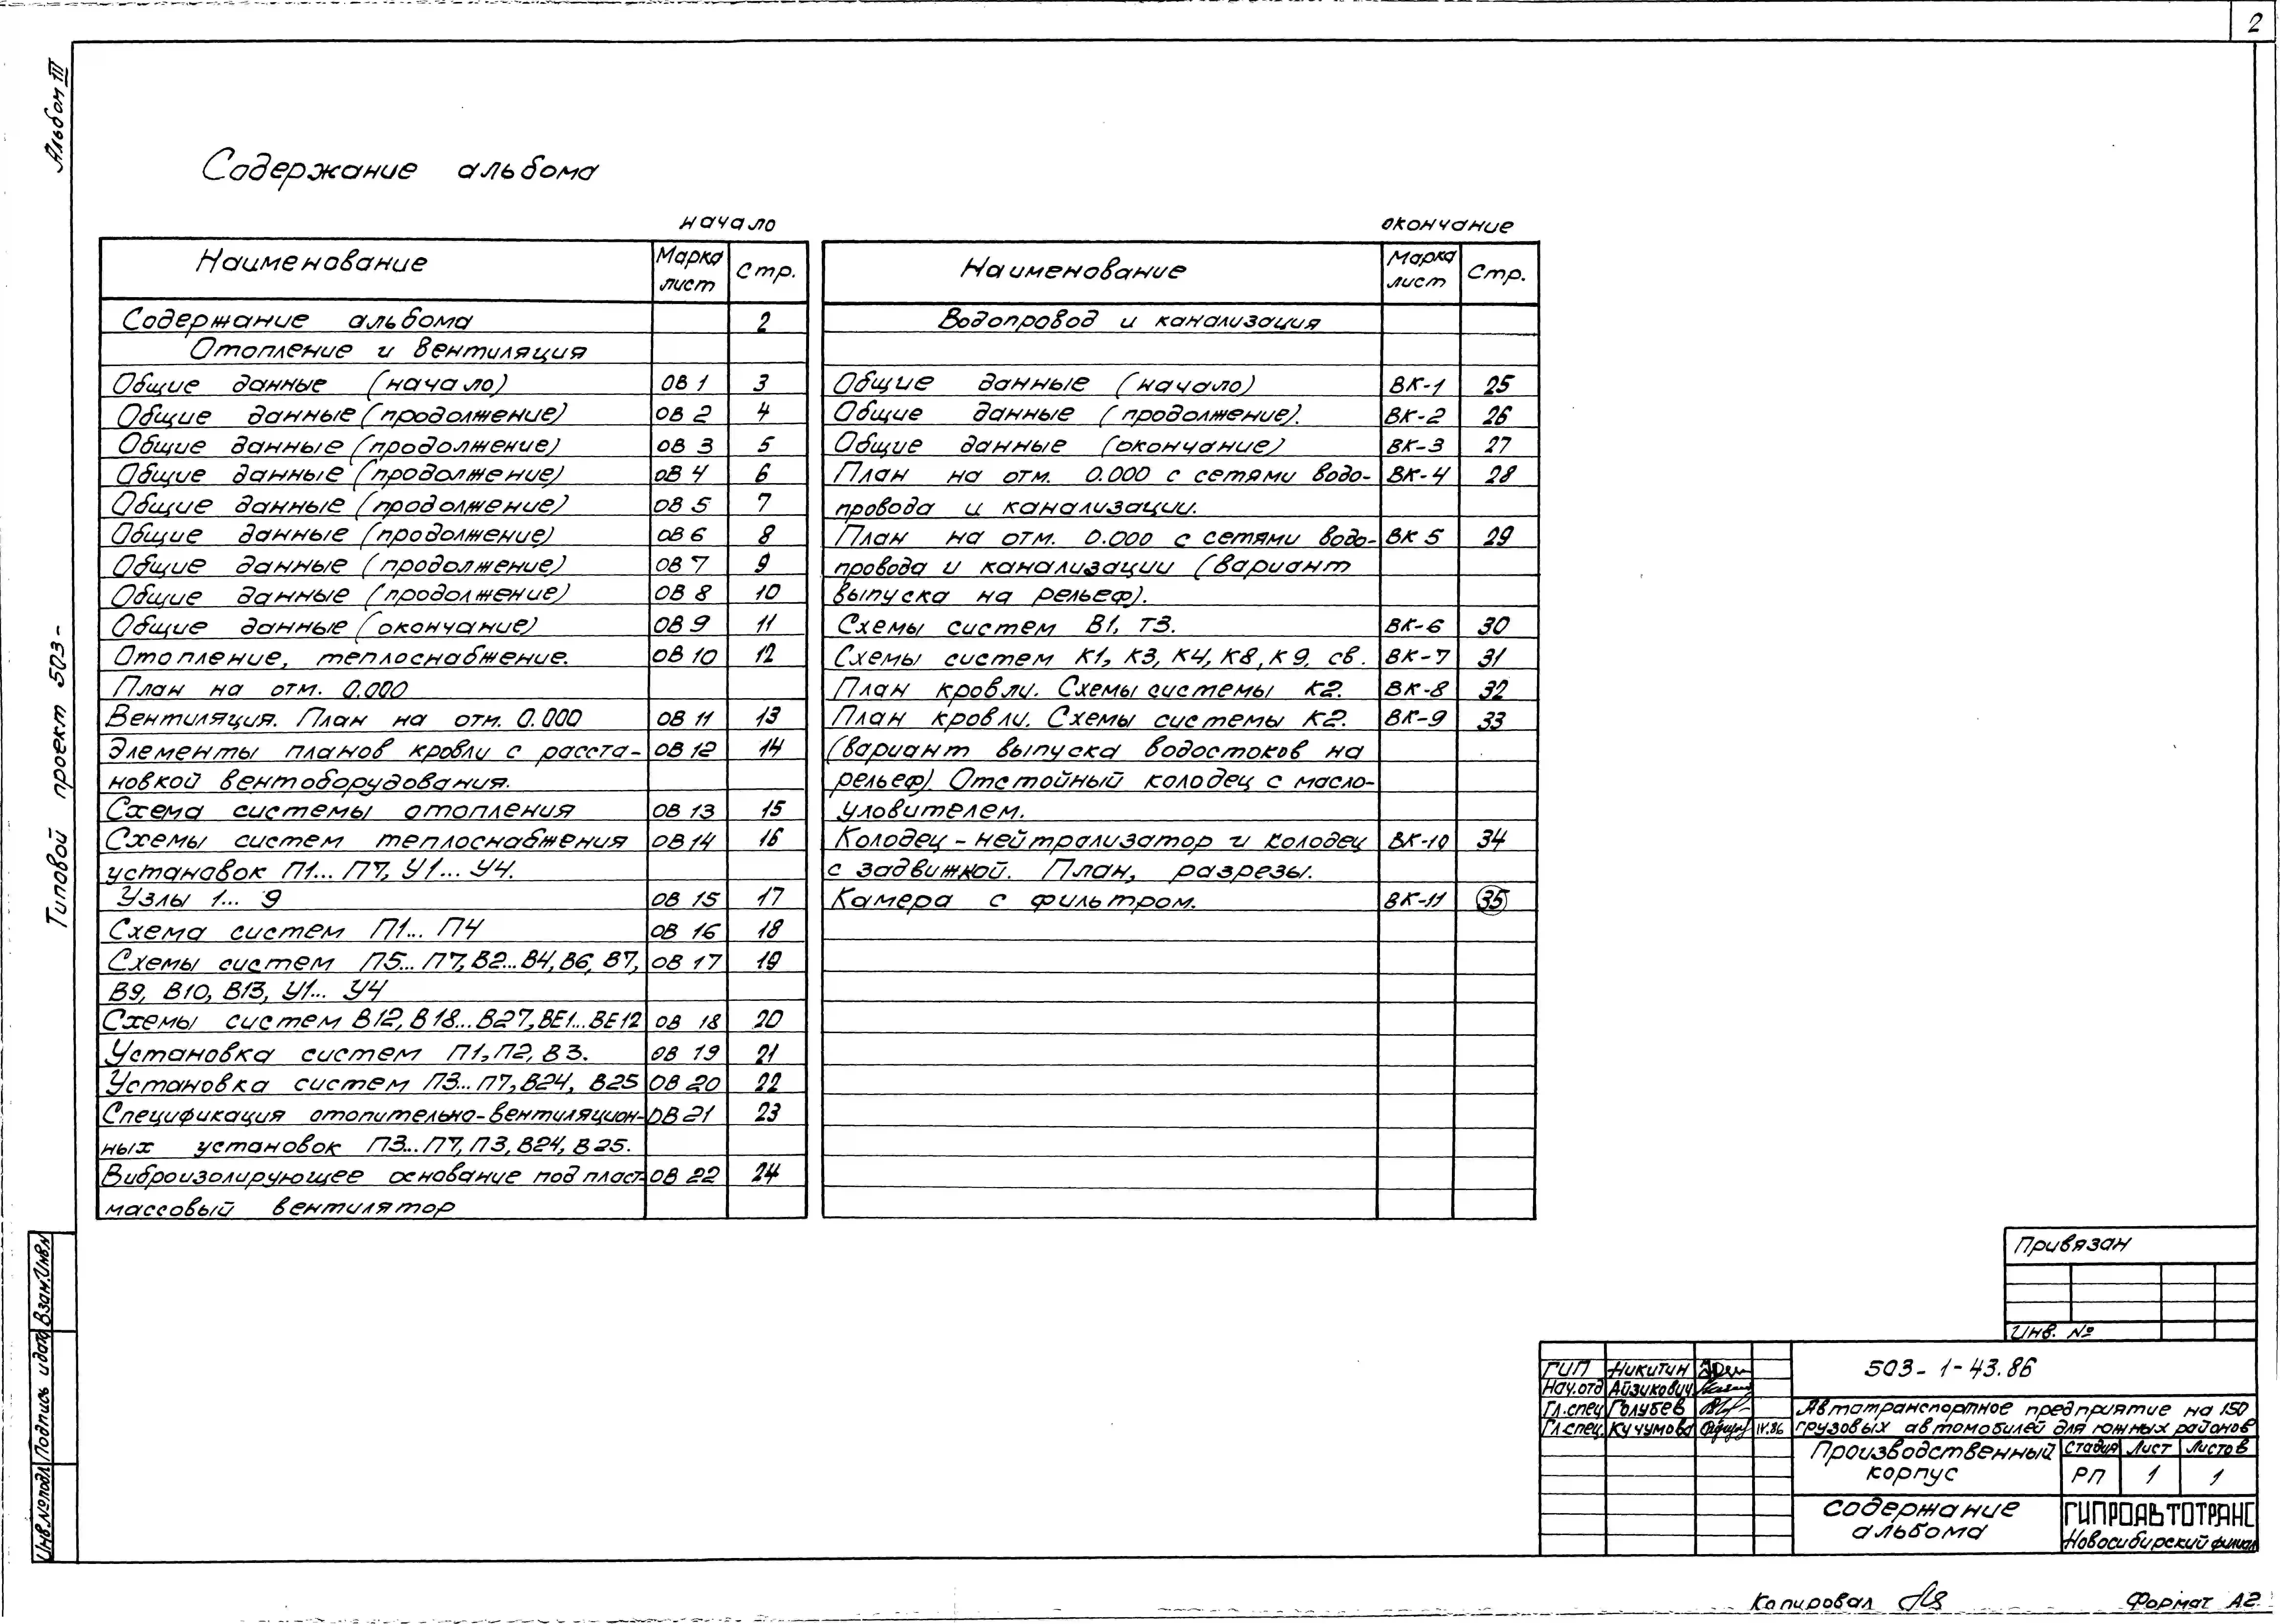 2
Альбом III
Типовой проект 503-
Содержание альбома
начало
Наименование Марка лист Стр.
Содержание альбома 2
Отопление и вентиляция
Общие данные (начало) ОВ 1 3
Общие данные (продолжение) ОВ 2 4
Общие данные (продолжение) ОВ 3 5
Общие данные (продолжение) ОВ 4 6
Общие данные (продолжение) ОВ 5 7
Общие данные (продолжение) ОВ 6 8
Общие данные (продолжение) ОВ 7 9
Общие данные (продолжение) ОВ 8 10
Общие данные (окончание) ОВ 9 11
Отопление, теплоснабжение. ОВ 10 12
План на отм. 0.000
Вентиляция. План на отм. 0.000 ОВ 11 13
Элементы планов кровли с расста- ОВ 12 14
новкой вентоборудования.
Схема системы отопления ОВ 13 15
Схемы систем теплоснабжения ОВ 14 16
установок П1... П7, У1... У4.
Узлы 1... 9 ОВ 15 17
Схема систем П1... П4 ОВ 16 18
Схемы систем П5... П7, В2...В4, В6, В7, ОВ 17 19
В9, В10, В13, У1... У4
Схемы систем В12, В18...В27, ВЕ1...ВЕ12 ОВ 18 20
Установка систем П1, П2, В3. ОВ 19 21
Установка систем П3... П7, В24, В25 ОВ 20 22
Спецификация отопительно-вентиляцион- ОВ 21 23
ных установок П3...П7, П3, В24, В25.
Виброизолирующее основание под пласт- ОВ 22 24
массовый вентилятор
окончание
Наименование Марка лист Стр.
Водопровод и канализация
Общие данные (начало) ВК-1 25
Общие данные (продолжение). ВК-2 26
Общие данные (окончание) ВК-3 27
План на отм. 0.000 с сетями водо- ВК-4 28
провода и канализации.
План на отм. 0.000 с сетями водо- ВК 5 29
провода и канализации (вариант
выпуска на рельеф).
Схемы систем В1, Т3. ВК-6 30
Схемы систем К1, К3, К4, К8, К9, св. ВК-7 31
План кровли. Схемы системы К2. ВК-8 32
План кровли. Схемы системы К2. ВК-9 33
(вариант выпуска водостоков на
рельеф). Отстойный колодец с масло-
уловителем.
Колодец - нейтрализатор и колодец ВК-10 34
с задвижкой. План, разрезы.
Камера с фильтром. ВК-11 35
Инв.№подл Подпись и дата Взам.Инв.№
Привязан
Инв. №
ГИП Никитин
Нач.отд Айзикович
Гл.спец Голубев
Гл.спец. Кучумова IV.86
503-1-43.86
Автотранспортное предприятие на 150
грузовых автомобилей для южных районов
Производственный
корпус
Стадия Лист Листов
РП 1 1
содержание
альбома
ГИПРОАВТОТРАНС
Новосибирский филиал
Копировал
Формат А2